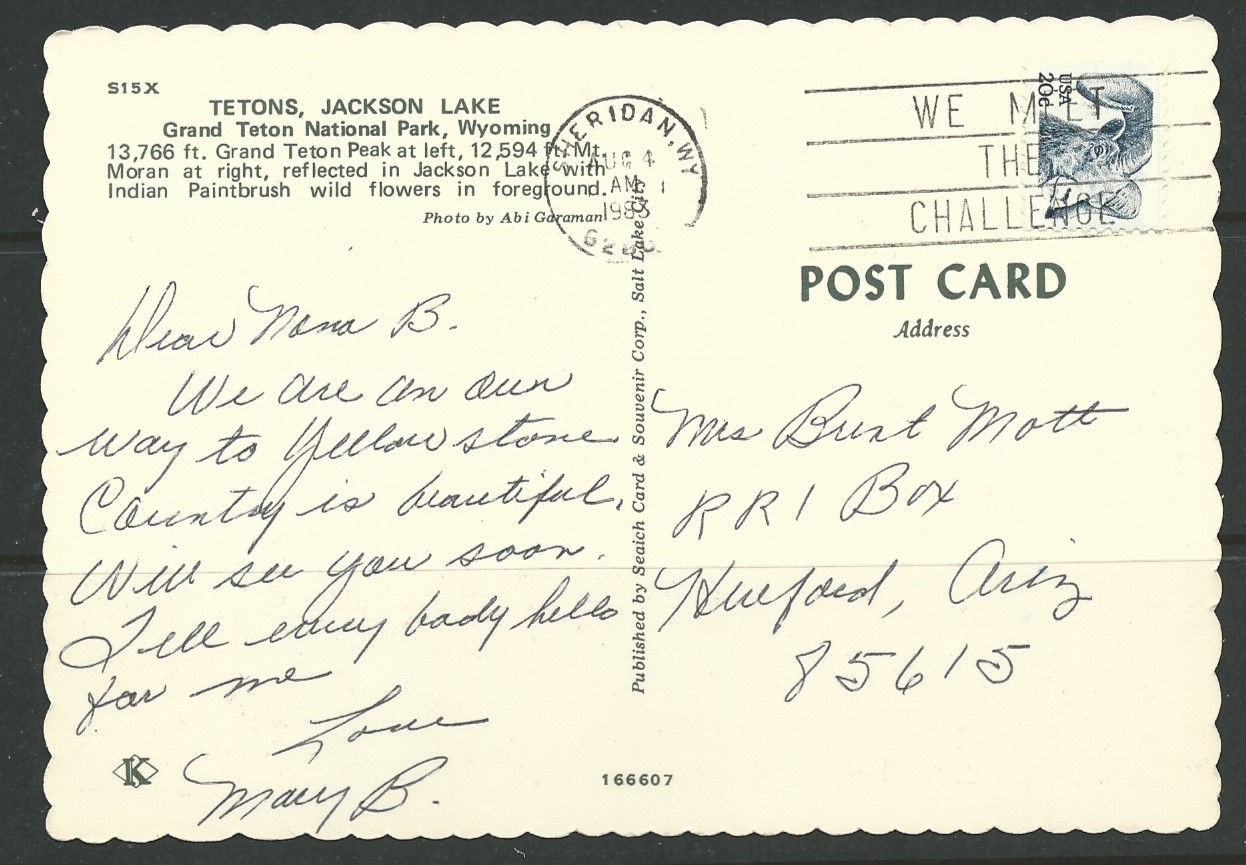 S15X
TETONS, JACKSON LAKE
Grand Teton National Park, Wyoming
13,766 ft. Grand Teton Peak at left, 12,594 ft. Mt.
Moran at right, reflected in Jackson Lake with
Indian Paintbrush wild flowers in foreground.
Photo by Abi Garaman
SHERIDAN, WY
AUG 4
AM
1983
WE MEET
THE
CHALLENGE
USA
20c
POST CARD
Address
Dear Nana B.
We are on our
way to Yellow stone
Country is beautiful.
Will see you soon.
Tell every body hello
for me
Love
Mary B.
Published by Seaich Card & Souvenir Corp., Salt Lake City
Mrs Burt Mott
RR 1 Box
Hereford, Ariz
85615
K
166607